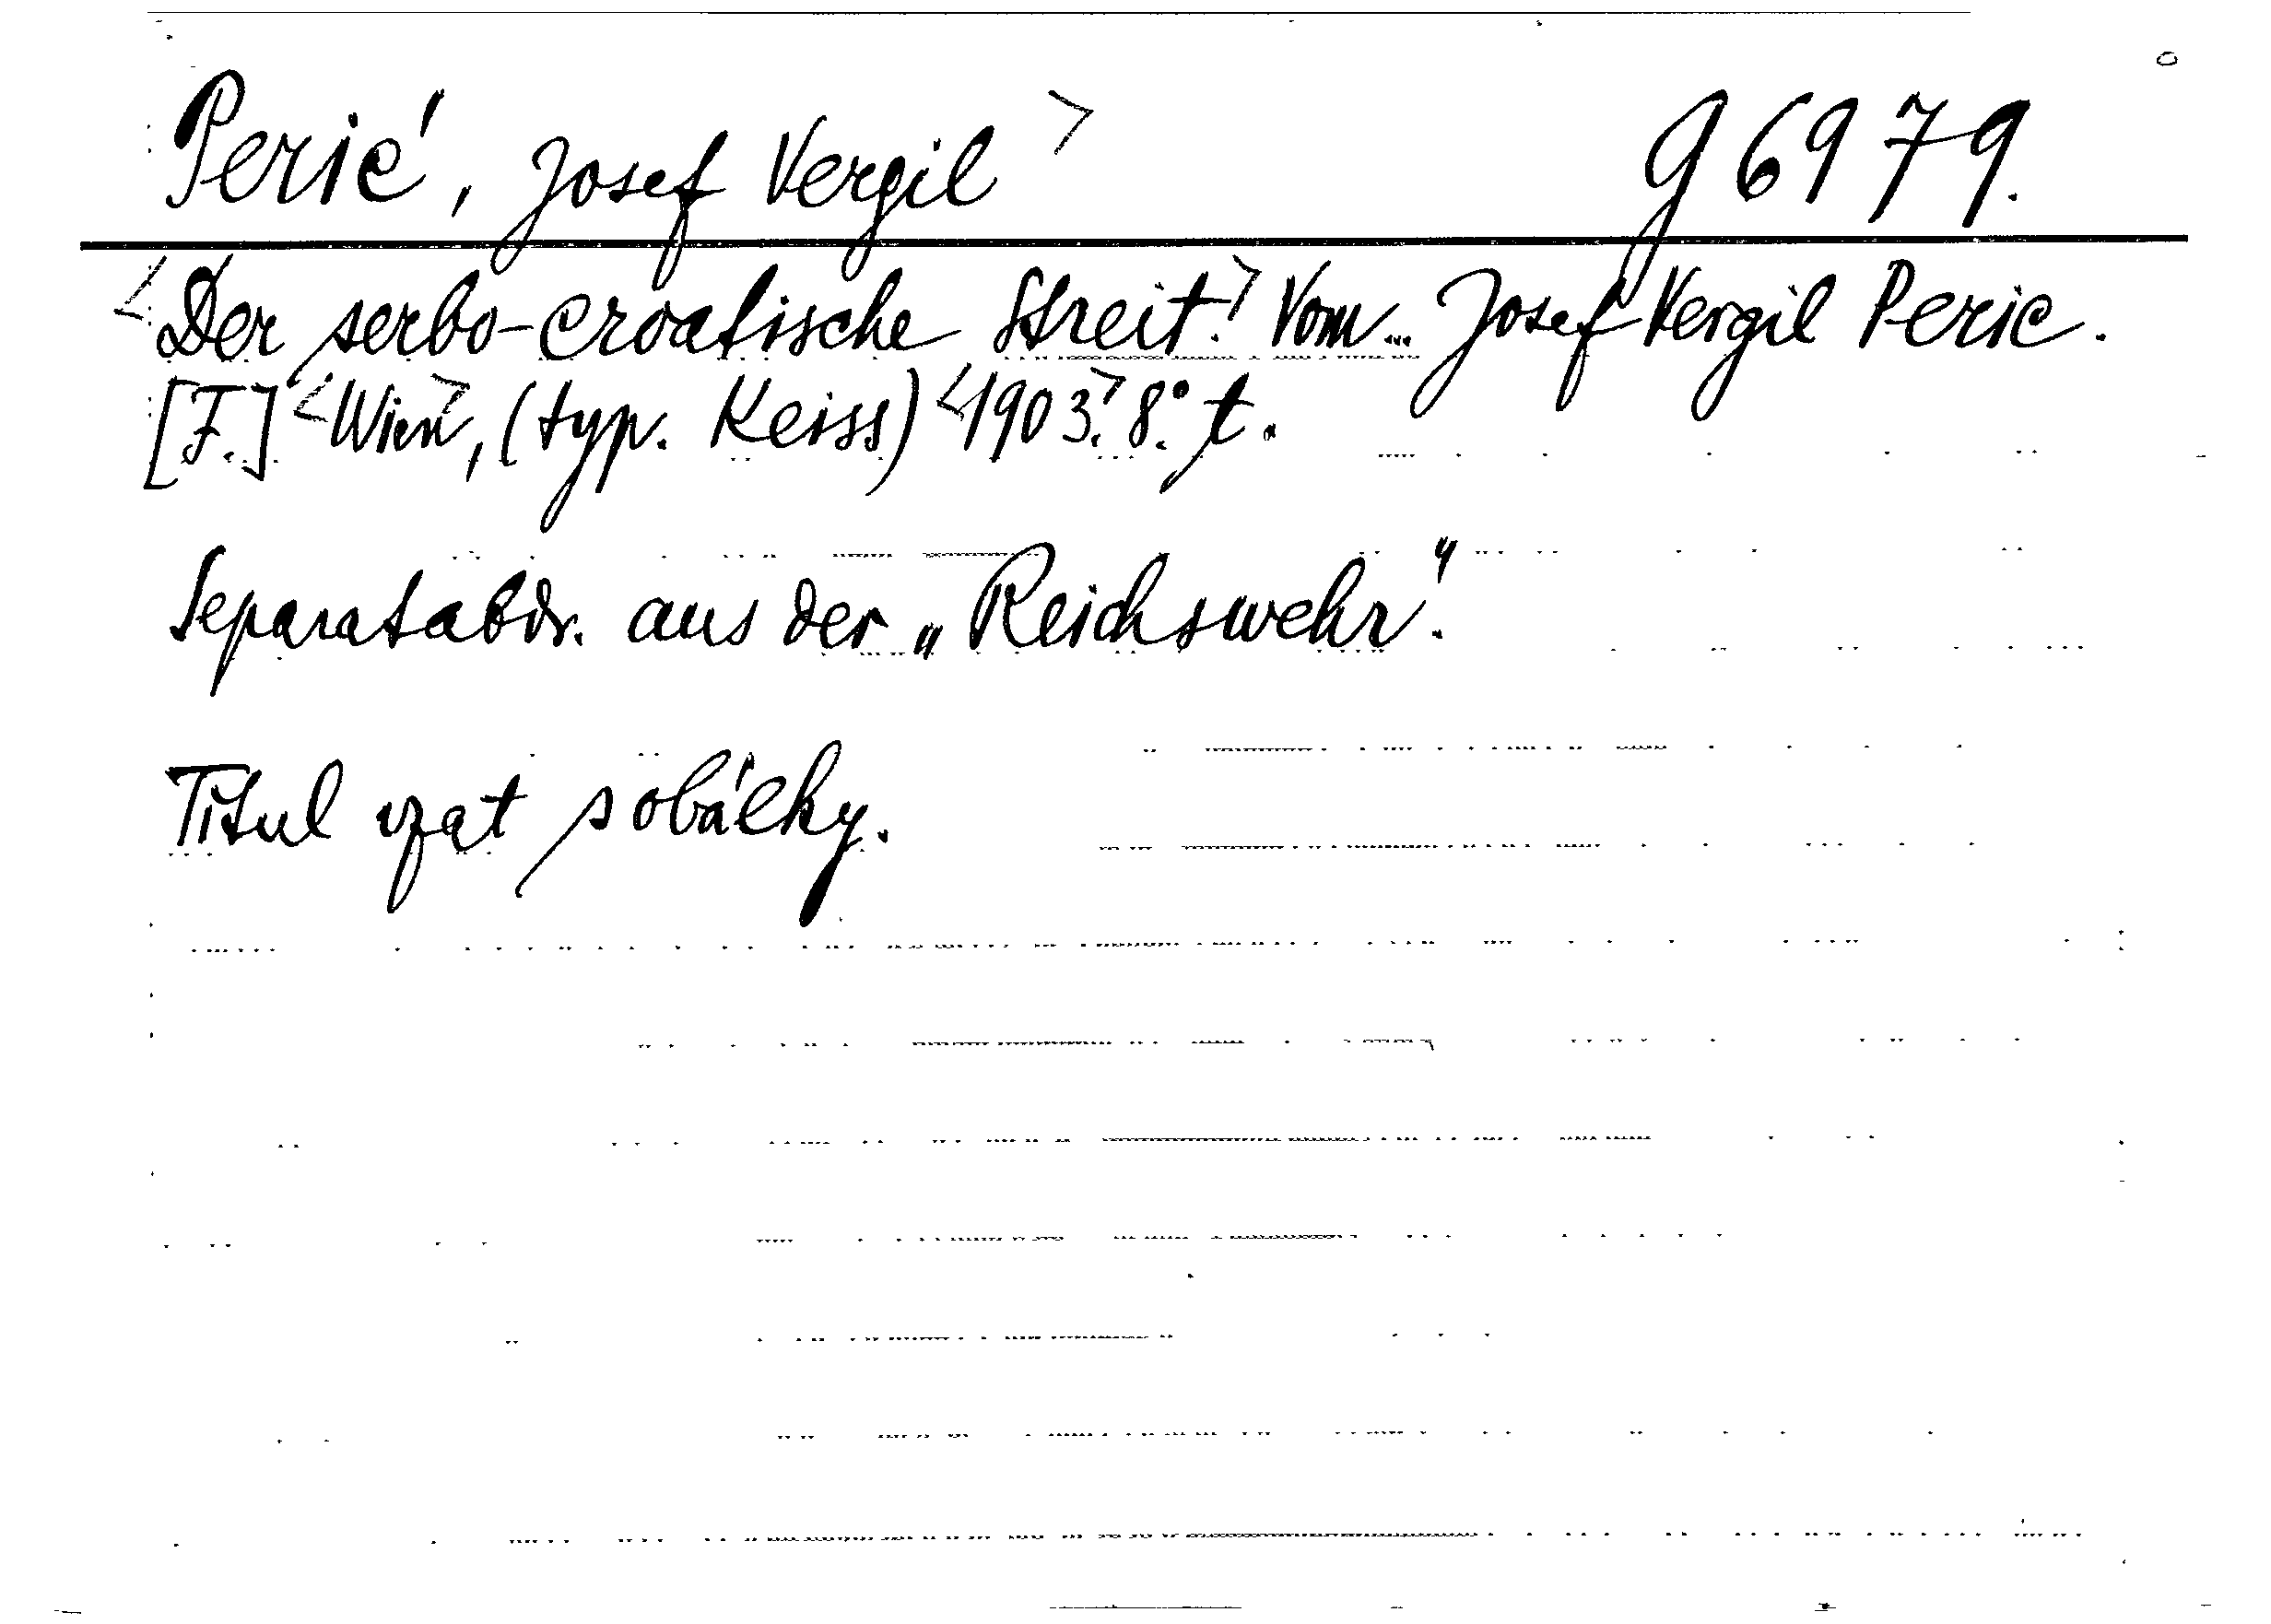 Perić, Josef Vergil> g 6979.
<Der serbo-croatische Streit.> Vom... Josef Vergil Peric.
[F.] <Wien>, (typ. Keiss) <1903.> 8.° t.
Separatabdr. aus der „Reichswehr".
Titul vzat s obálky.